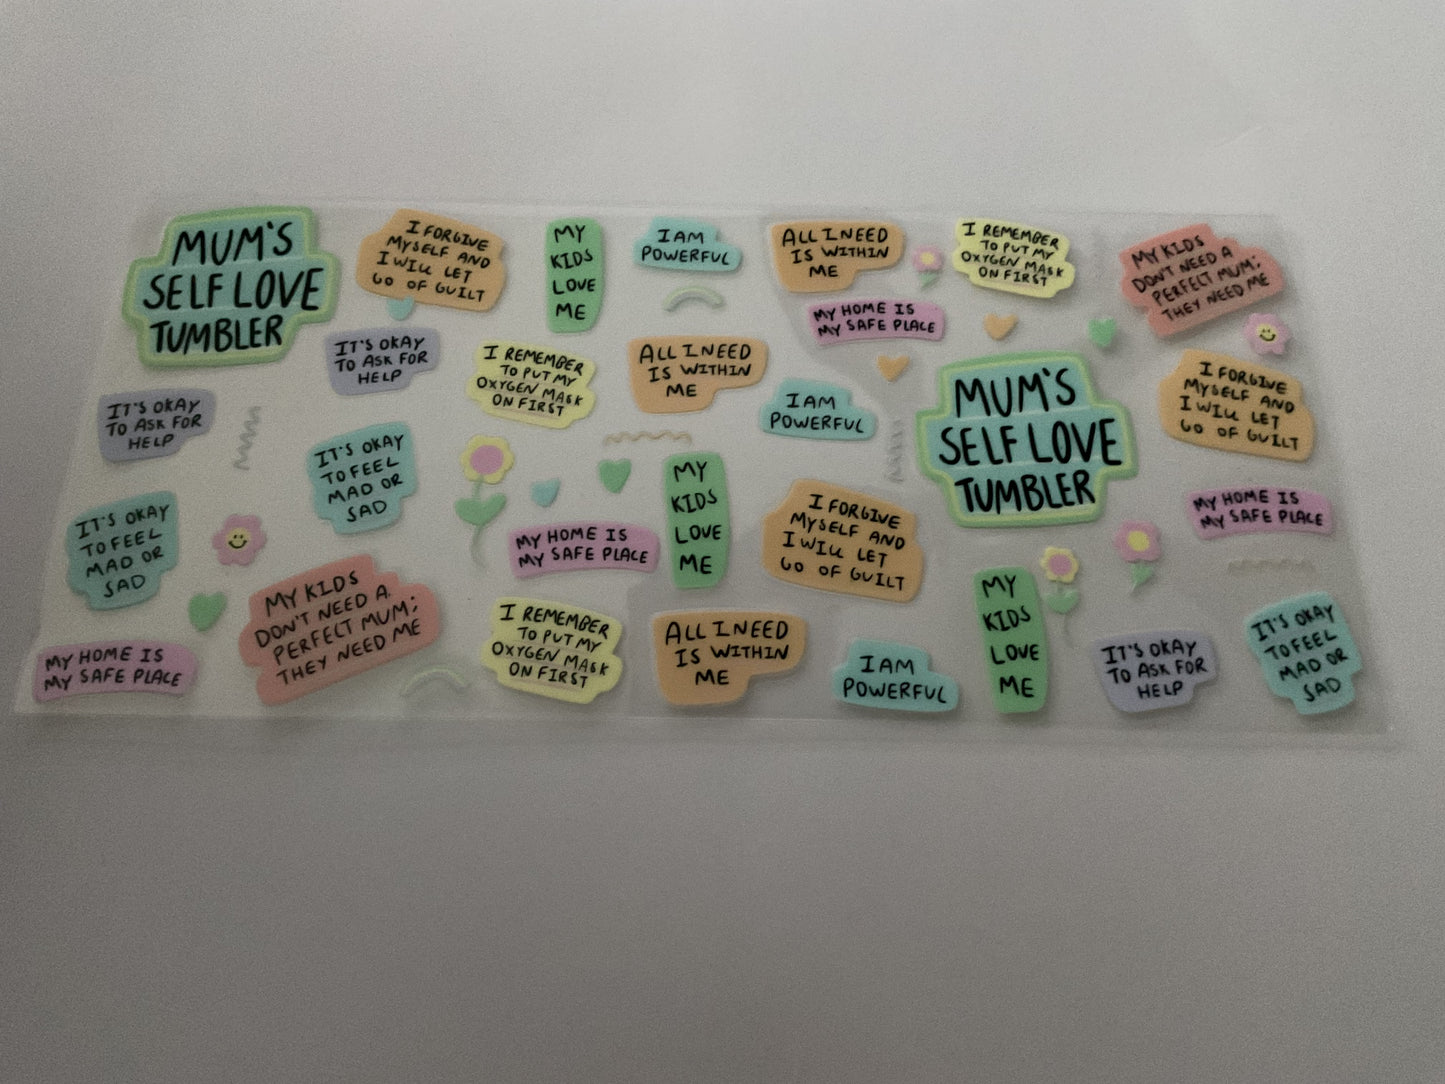 MUM'S
SELF LOVE
TUMBLER
I FORGIVE
MYSELF AND
I WILL LET
GO OF GUILT
MY
KIDS
LOVE
ME
I AM
POWERFUL
ALL I NEED
IS WITHIN
ME
I REMEMBER
TO PUT MY
OXYGEN MASK
ON FIRST
MY KIDS
DON'T NEED A
PERFECT MUM;
THEY NEED ME
MY HOME IS
MY SAFE PLACE
IT'S OKAY
TO ASK FOR
HELP
I REMEMBER
TO PUT MY
OXYGEN MASK
ON FIRST
ALL I NEED
IS WITHIN
ME
I AM
POWERFUL
MUM'S
SELF LOVE
TUMBLER
I FORGIVE
MYSELF AND
I WILL LET
GO OF GUILT
IT'S OKAY
TO ASK FOR
HELP
IT'S OKAY
TO FEEL
MAD OR
SAD
MY
KIDS
LOVE
ME
I FORGIVE
MYSELF AND
I WILL LET
GO OF GUILT
MY HOME IS
MY SAFE PLACE
IT'S OKAY
TO FEEL
MAD OR
SAD
MY HOME IS
MY SAFE PLACE
MY KIDS
DON'T NEED A
PERFECT MUM;
THEY NEED ME
MY HOME IS
MY SAFE PLACE
I REMEMBER
TO PUT MY
OXYGEN MASK
ON FIRST
ALL I NEED
IS WITHIN
ME
I AM
POWERFUL
MY
KIDS
LOVE
ME
IT'S OKAY
TO ASK FOR
HELP
IT'S OKAY
TO FEEL
MAD OR
SAD